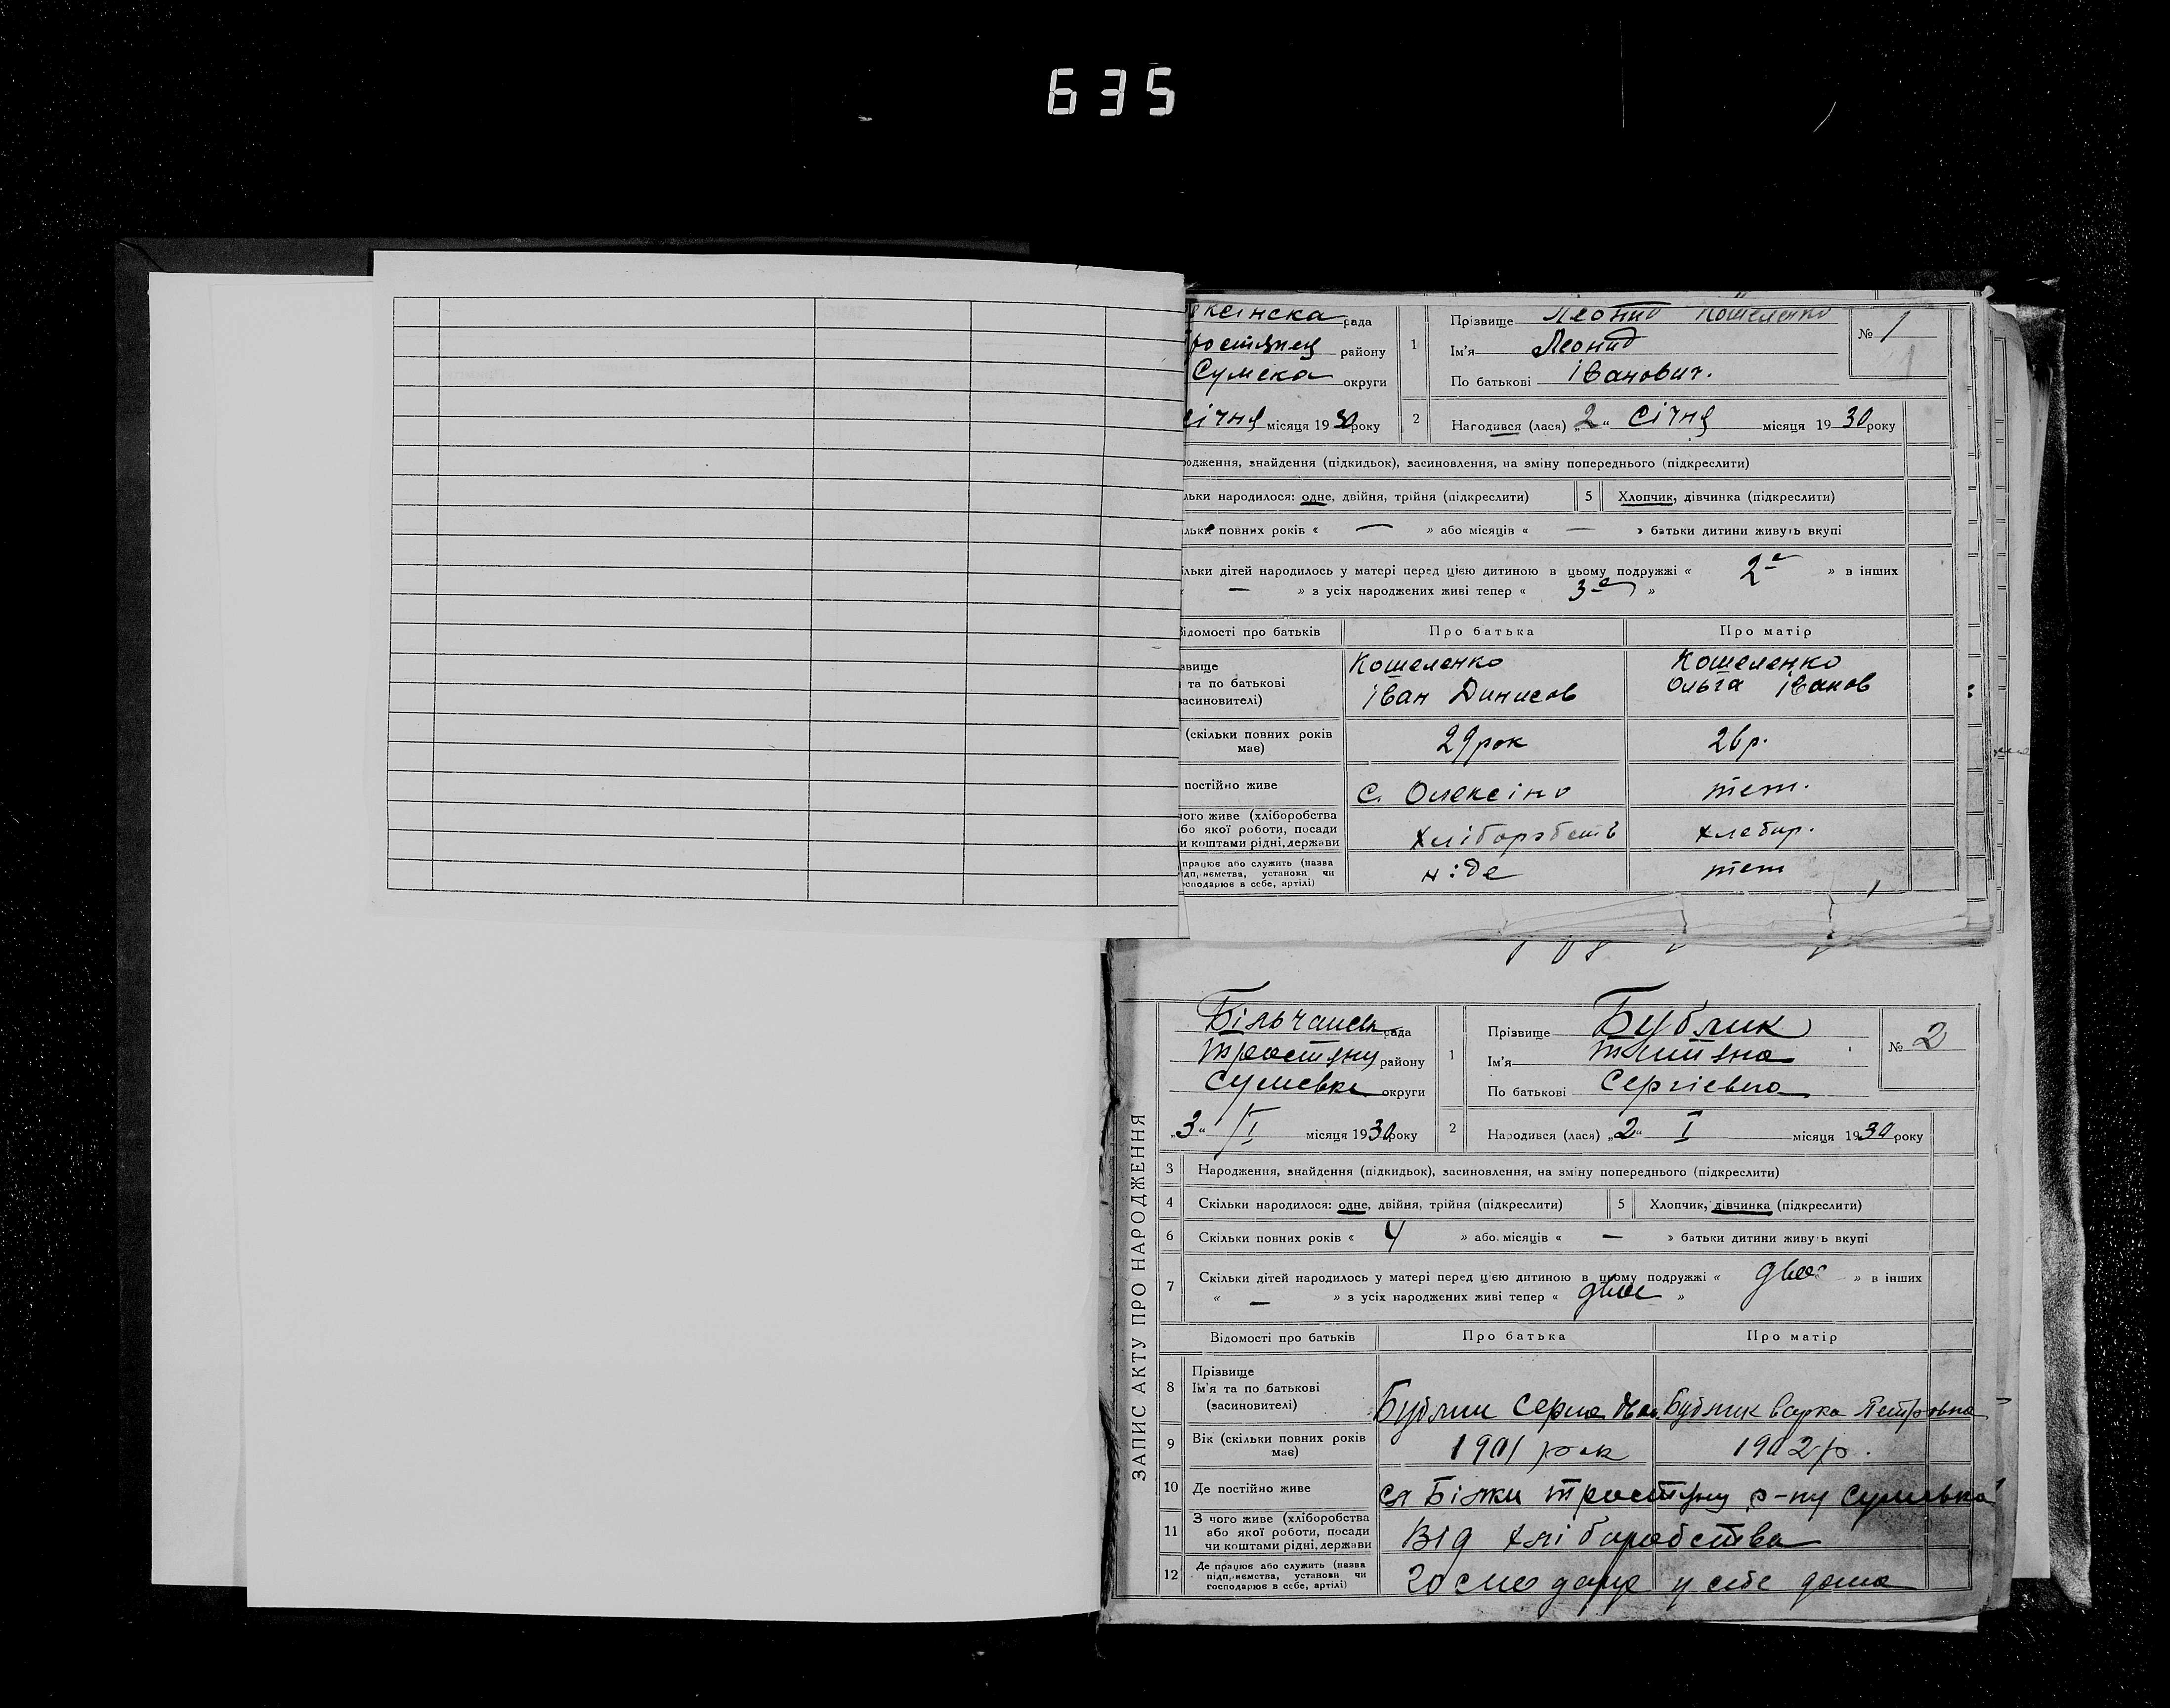 635
ксінска рада
ростянец району
Сумска округи
січня місяця 1930 року
1 Прізвище Леонид Кошеленко
Ім'я Леонид
По батькові Іванович.
№ 1
1
2 Народився (лася) „2“ Січня місяця 1930 року
одження, знайдення (підкидьок), засиновлення, на зміну попереднього (підкреслити)
льки народилося: одне, двійня, трійня (підкреслити) 5 Хлопчик, дівчинка (підкреслити)
льки повних років « — » або місяців « — » батьки дитини живуть вкупі
ільки дітей народилось у матері перед цією дитиною в цьому подружжі « 2-е » в інших
« — » з усіх народжених живі тепер « 3-е »
Відомості про батьків Про батька Про матір
звище Кошеленко Кошеленко
та по батькові Іван Динисов Ольга Іванов
засиновителі)
(скільки повних років має) 29 рок 26 р.
постійно живе С. Олексіно тет.
чого живе (хліборобства
бо якої роботи, посади Хліборобств хлебор.
и коштами рідні, держави
працює або служить (назва
дп,иємства, установи чи ніде тет
осподарює в себе, артілі)
ЗАПИС АКТУ ПРО НАРОДЖЕННЯ
Більчанск рада
Тростянц району
Сумська округи
„3“ I місяця 1930 року
1 Прізвище Бублик
Ім'я Титяна
По батькові Сергієвна
№ 2
2 Народився (лася) „2“ I місяця 1930 року
3 Народження, знайдення (підкидьок), засиновлення, на зміну попереднього (підкреслити)
4 Скільки народилося: одне, двійня, трійня (підкреслити) 5 Хлопчик, дівчинка (підкреслити)
6 Скільки повних років « 4 » або місяців « — » батьки дитини живуть вкупі
7 Скільки дітей народилось у матері перед цією дитиною в цьому подружжі « двоє » в інших
« — » з усіх народжених живі тепер « двоє »
Відомості про батьків Про батька Про матір
8 Прізвище
Ім'я та по батькові
(засиновителі) Бублик Серг Бублик Варка Петровна
9 Вік (скільки повних років має) 1901 рок 1902 р.
10 Де постійно живе Білки Тростянц р-ну Сумська
11 З чого живе (хліборобства
або якої роботи, посади Від хліборобства
чи коштами рідні, держави
12 Де працює або служить (назва
підп,иємства, установи чи господарує у себе дома
господарює в себе, артілі)